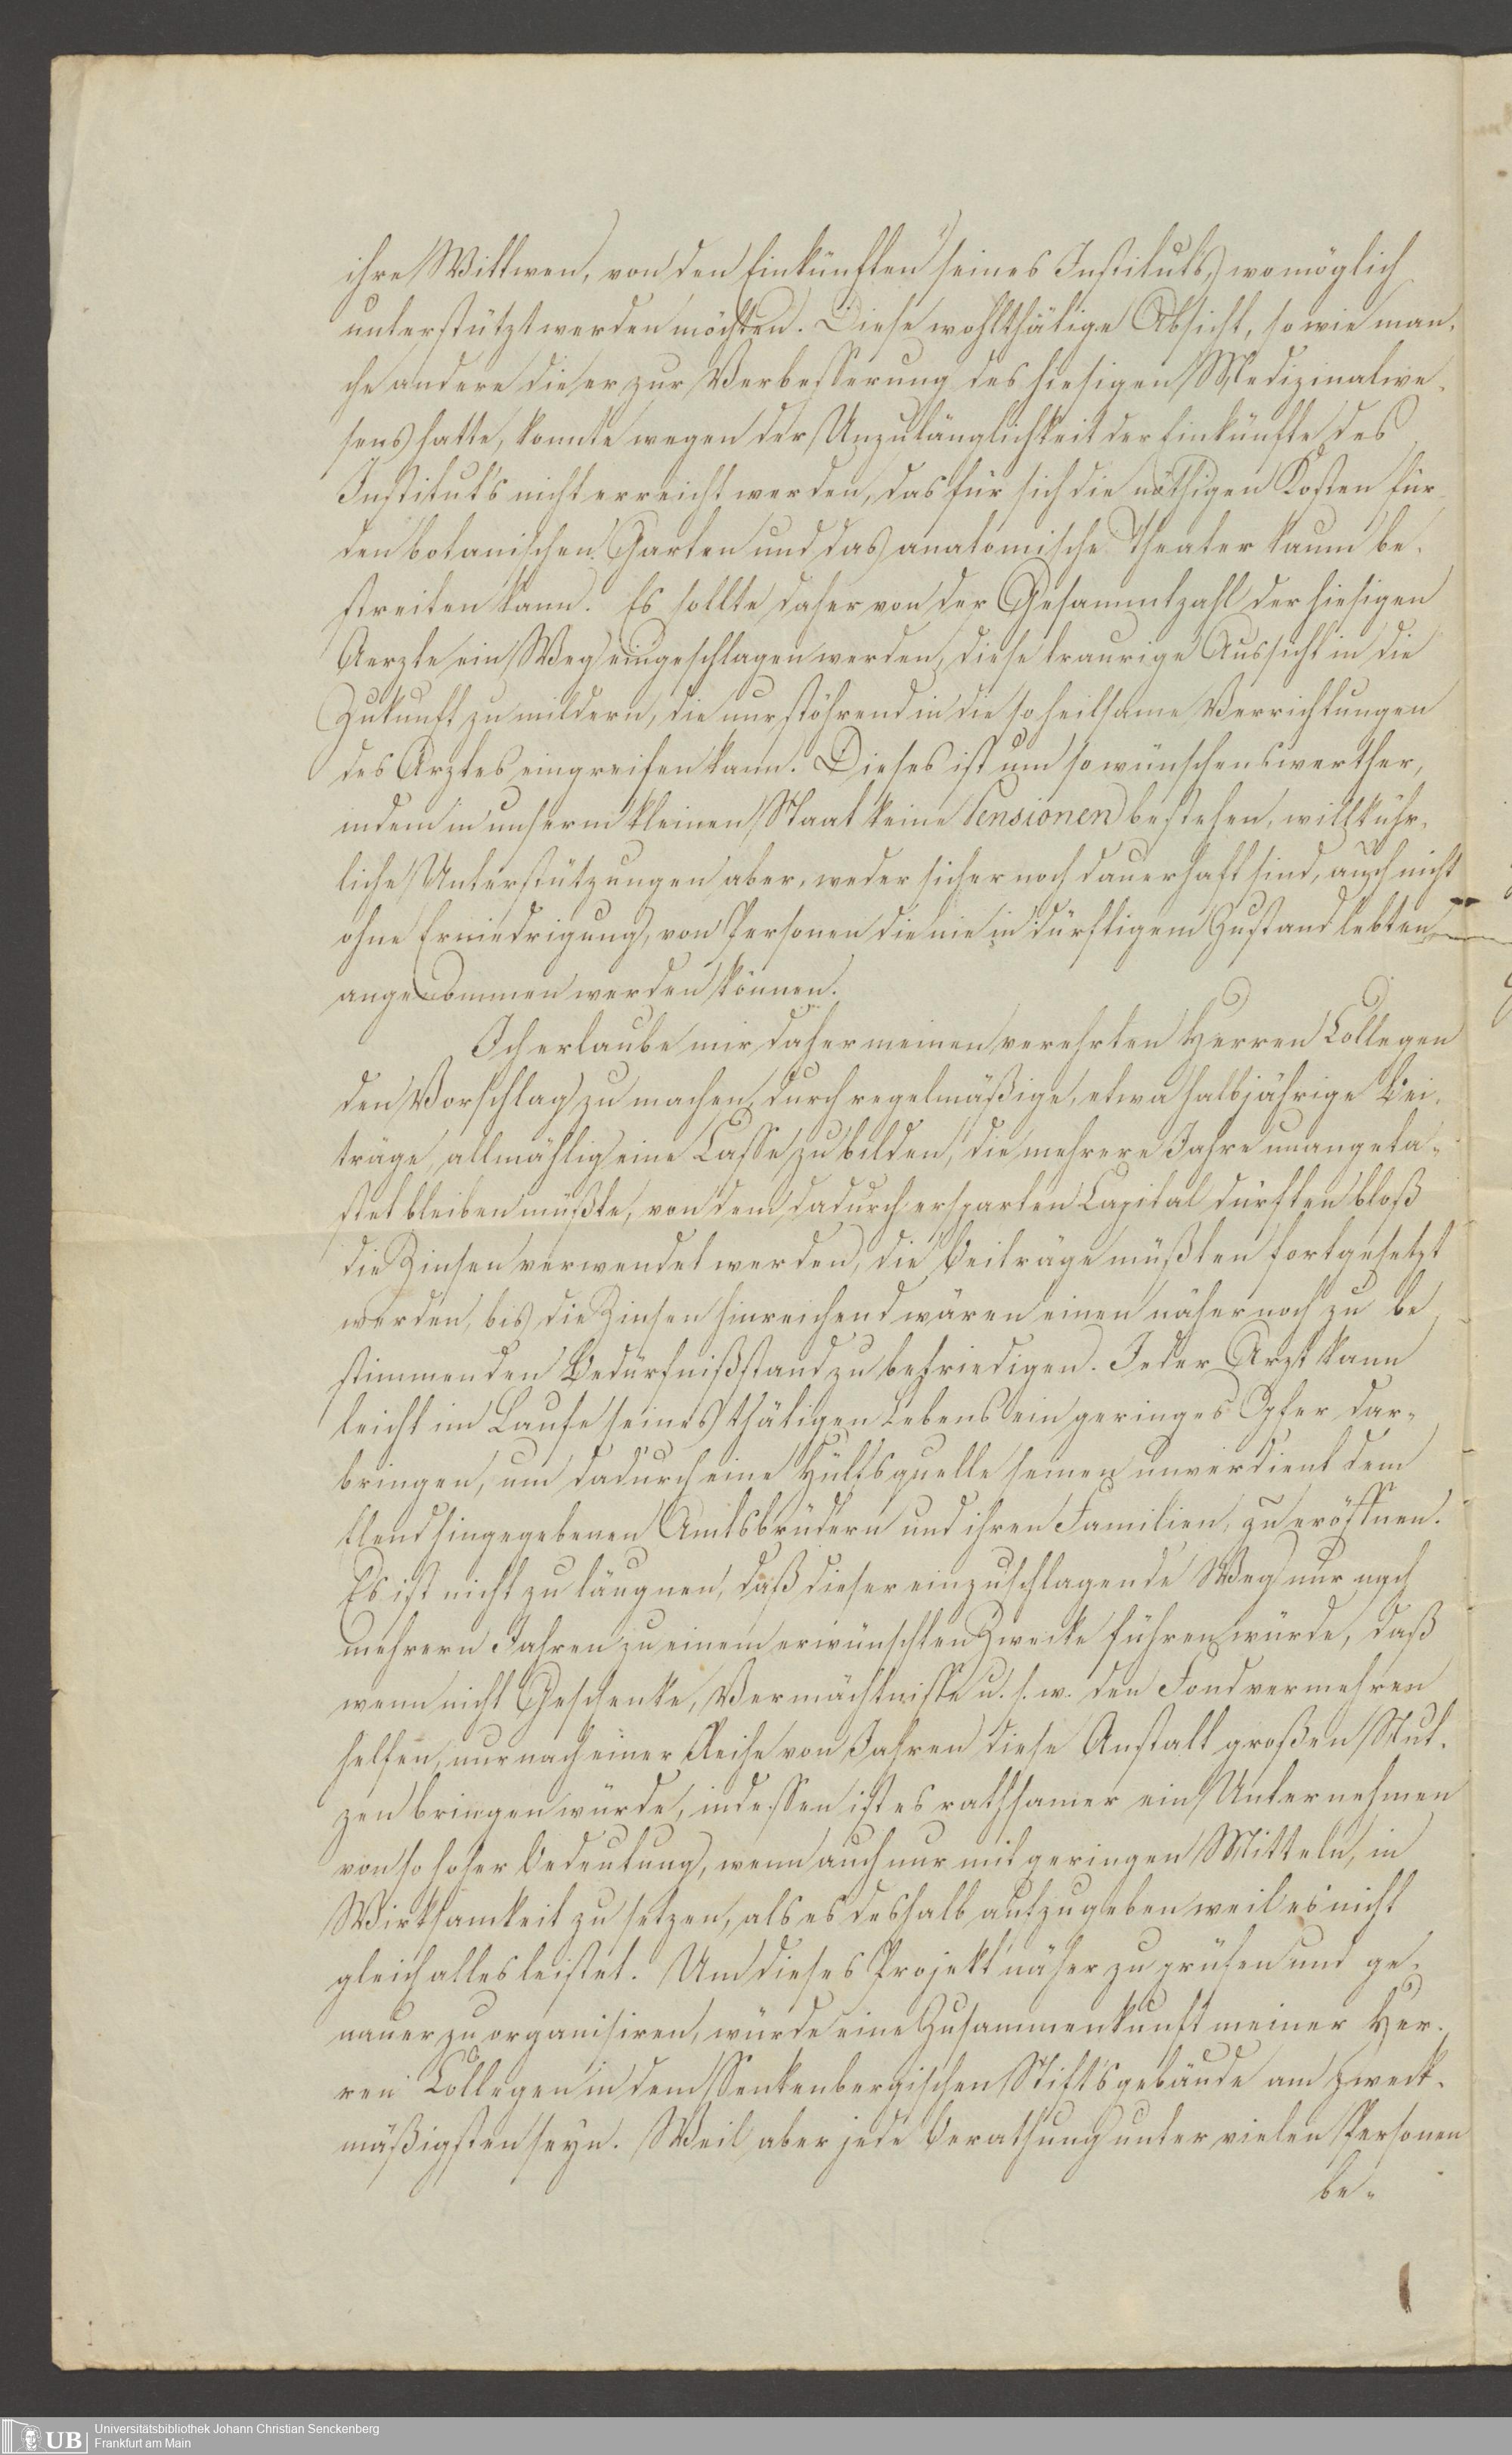 ihre Wittwen, von den Einkünften seines Instituts, womöglich
unterstützt werden möchten. Diese wohlthätige Absicht, so wie man-
che andere die er zur Verbesserung des hiesigen Medizinalwe-
sens hatte, konnte wegen der Unzulänglichkeit der Einkünfte des
Instituts nicht erreicht werden, das für sich die nöthigen Kosten für
den botanischen Garten und das anatomische Theater kaum be-
streiten kann. Es sollte daher von der Gesammtzahl der hiesigen
Aerzte ein Weg eingeschlagen werden, diese traurige Aussicht in die
Zukunft zu mildern, die nur stöhrend in die so heilsame Verrichtungen
des Arztes eingreifen kann. Dieses ist um so wünschenswerther,
indem in unserm kleinen Staat keine Pensionen bestehen, willkühr-
liche Unterstützungen aber, weder sicher noch dauerhaft sind, auch nicht
ohne Erniedrigung, von Personen die nie in dürftigem Zustand lebten
angenommen werden können.
Ich erlaube mir daher meinen verehrten Herren Collegen
den Vorschlag zu machen, durch regelmäßige, etwa halbjährige Bei-
träge, allmählig eine Casse zu bilden, die mehrere Jahre unangeta-
stet bleiben müßte, von dem dadurch ersparten Capital dürften bloß
die Zinsen verwendet werden, die Beiträge müßten fortgesetzt
werden, bis die Zinsen hinreichend wären einen näher noch zu be
stimmenden Bedürfnißstand zu befriedigen. Jeder Arzt kann
leicht im Laufe seines thätigen Lebens ein geringes Opfer dar-
bringen, um dadurch eine Hülfsquelle seinen unverdient dem
Elend hingegebenen Amtsbrüdern und ihren Familien, zu eröffnen.
Es ist nicht zu läugnen, daß dieser einzuschlagende Weg nur nach
mehrern Jahren zu einem erwünschten Zwecke führen würde, daß
wenn nicht Geschenke, Vermächtnisse u. s. w. den Fond vermehren
helfen, nur nach einer Reihe von Jahren diese Anstalt großen Nut-
zen bringen würde, indessen ist es rathsamer ein Unternehmen
von so hoher Bedeutung, wenn auch nur mit geringen Mitteln, in
Wirksamkeit zu setzen, als es deshalb aufzugeben weil es nicht
gleich alles leistet. Um dieses Projekt näher zu prüfen und ge-
nauer zu organisiren, würde eine Zusammenkunft meiner Her-
ren Collegen in dem Senkenbergischen Stiftsgebäude am zweck-
mäßigsten seyn. Weil aber jede Berathung unter vielen Personen
be-
UB
Universitätsbibliothek Johann Christian Senckenberg
Frankfurt am Main